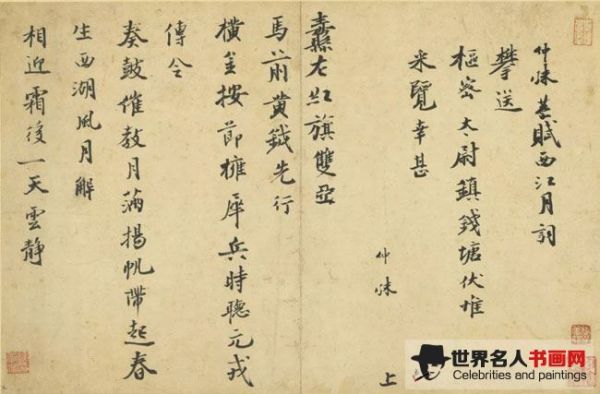 仲殊恭賦西江月詞
攀送
樞密太尉鎮錢塘伏惟
采覽幸甚
仲殊
上
纛左紅旗雙亞
馬前黃鉞先行
橫金按節擁犀兵時聽元戎
傳令
奏鼓催教月滿揚帆帶起春
生西湖風月解
相迎霜後一天雲靜
世界名人书画网
Celebrities and paintings